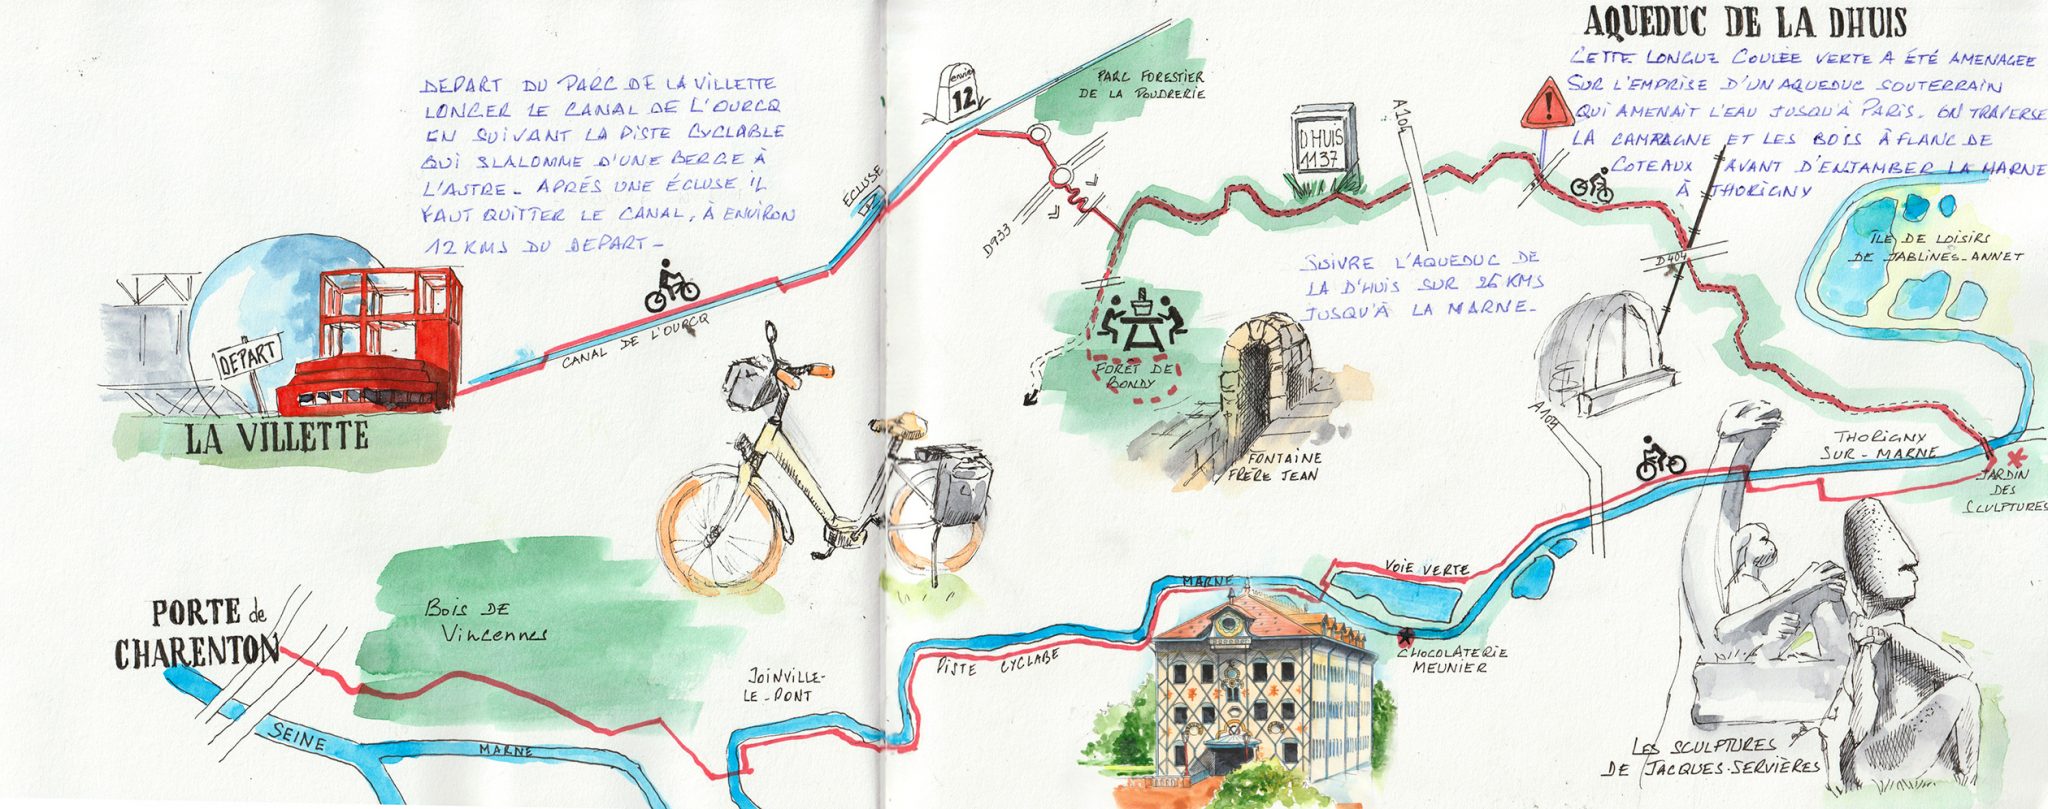 DEPART DU PARC DE LA VILLETTE
LONGER LE CANAL DE L'OURCQ
EN SUIVANT LA PISTE CYCLABLE
QUI SLALOMME D'UNE BERGE À
L'AUTRE - APRÉS UNE ÉCLUSE IL
FAUT QUITTER LE CANAL, À ENVIRON
12 KMS DU DEPART -
DEPART
LA VILLETTE
CANAL DE L'OURCQ
ÉCLUSE
12
PARC FORESTIER
DE LA POUDRERIE
D933
FORÊT DE
BONDY
FONTAINE
FRÈRE JEAN
DHUIS
1137
A104
SUIVRE L'AQUEDUC DE
LA D'HUIS SUR 26 KMS
JUSQU'À LA MARNE -
AQUEDUC DE LA DHUIS
CETTE LONGUE COULÉE VERTE A ÉTÉ AMENAGEE
SUR L'EMPRISE D'UN AQUEDUC SOUTERRAIN
QUI AMENAIT L'EAU JUSQU'À PARIS. ON TRAVERSE
LA CAMPAGNE ET LES BOIS À FLANC DE
COTEAUX AVANT D'ENJAMBER LA MARNE
À THORIGNY
ÎLE DE LOISIRS
DE JABLINES-ANNET
D404
A104
THORIGNY
SUR-MARNE
JARDIN
DES
SCULPTURES
VOIE VERTE
CHOCOLATERIE
MEUNIER
LES SCULPTURES
DE JACQUES-SERVIÈRES
MARNE
PISTE CYCLABE
JOINVILLE-
LE-PONT
BOIS DE
VINCENNES
PORTE de
CHARENTON
SEINE
MARNE